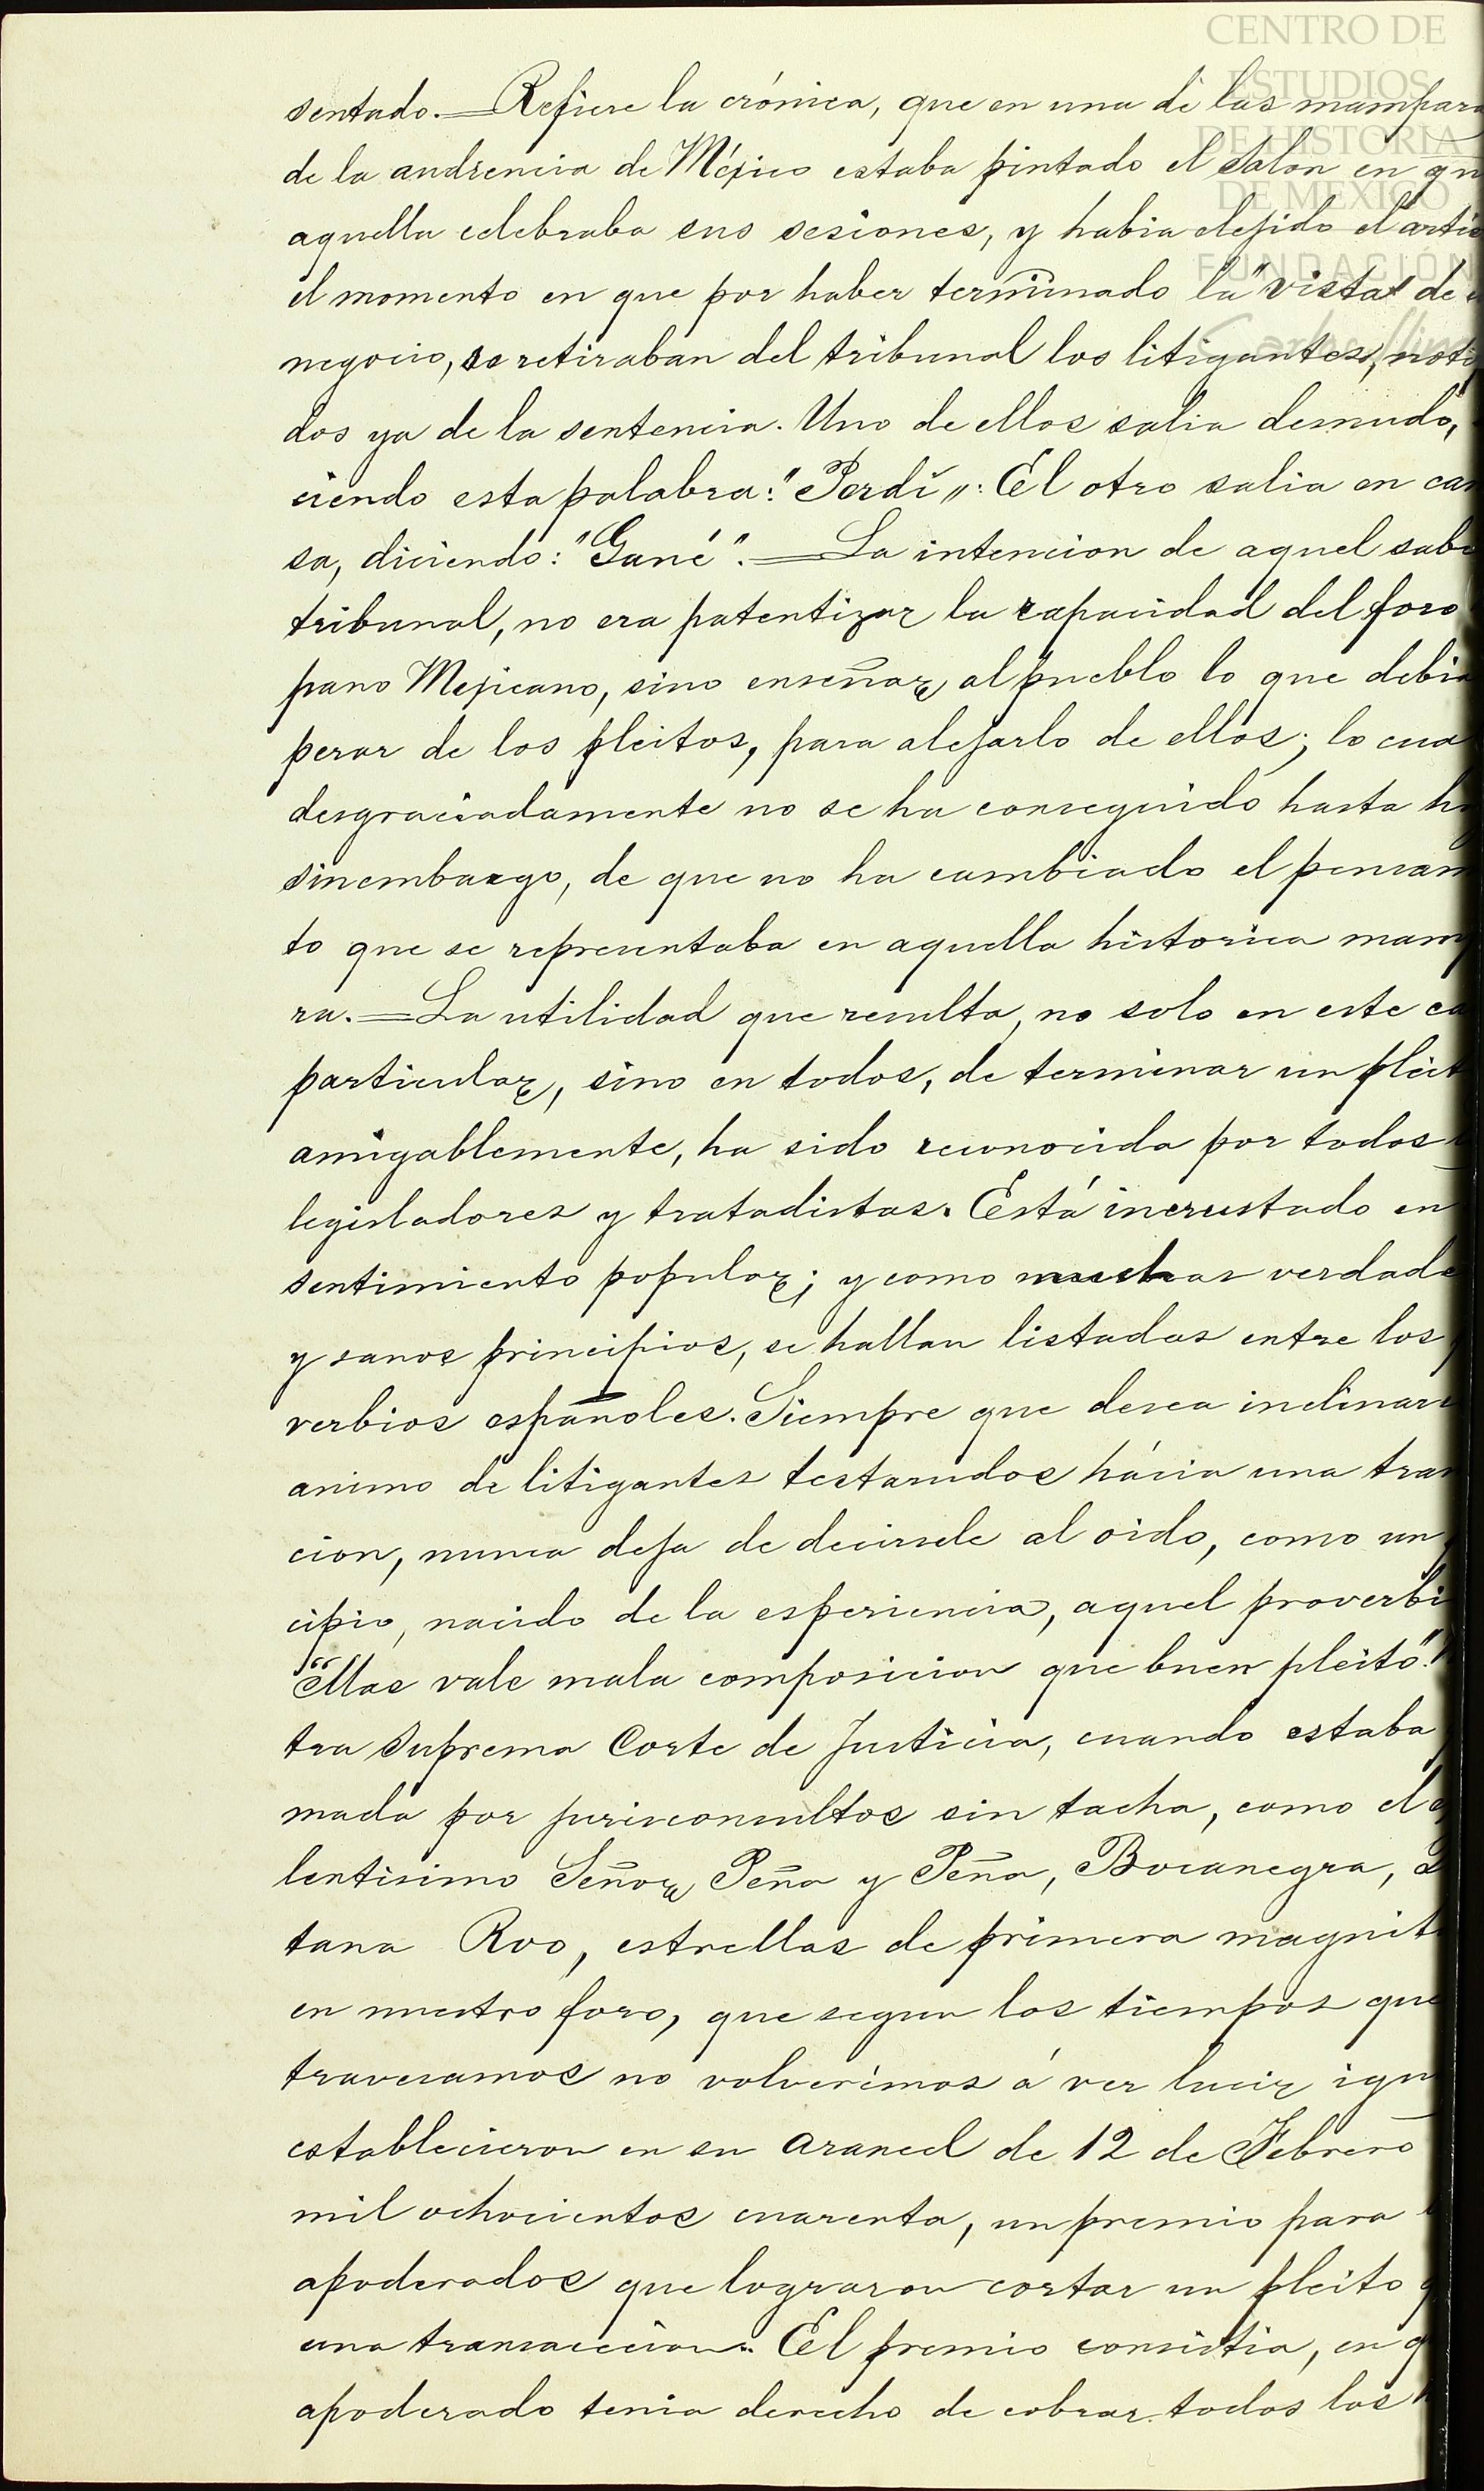 CENTRO DE
ESTUDIOS
DE HISTORIA
DE MEXICO
FUNDACIÓN
sentado.=Refiere la crónica, que en una de las mampara
de la audiencia de Méjico estaba pintado el salon en qu
aquella celebraba sus sesiones, y habia elejido el artis
el momento en que por haber terminado la "vista" de
negocio, se retiraban del tribunal los litigantes, noti
dos ya de la sentencia. Uno de ellos salia desnudo,
ciendo esta palabra: "Perdí": El otro salia en cam
sa, diciendo: "Gané".=La intencion de aquel sabi
tribunal, no era patentizar la rapacidad del foro
pano Mejicano, sino enseñar al pueblo lo que debia
perar de los pleitos, para alejarlo de ellos; lo cua
desgraciadamente no se ha conseguido hasta ho
sinembargo, de que no ha cambiado el pensam
to que se representaba en aquella historica mamp
ra.=La utilidad que resulta, no solo en este ca
particular, sino en todos, de terminar un pleit
amigablemente, ha sido reconocida por todos
legisladores y tratadistas. Está incrustado en
sentimiento popular; y como muchas verdade
y sanos principios, se hallan listadas entre los
verbios españoles. Siempre que desea inclinar
animo de litigantes testarudos hácia una tran
cion, nunca deja de decirsele al oido, como un
cipio, nacido de la esperiencia, aquel proverbi
"Mas vale mala composicion que buen pleito".
tra Suprema Corte de Justicia, cuando estaba
mada por jurisconsultos sin tacha, como el
lentisimo Señor Peña y Peña, Bocanegra,
tana Roo, estrellas de primera magnit
en nuestro foro, que segun los tiempos que
travesamos no volverémos á ver lucir igu
establecieron en su arancel de 12 de Febrero
mil ochocientos cuarenta, un premio para
apoderados que lograran cortar un pleito
una transaccion. El premio consistia, en q
apoderado tenia derecho de cobrar todos los